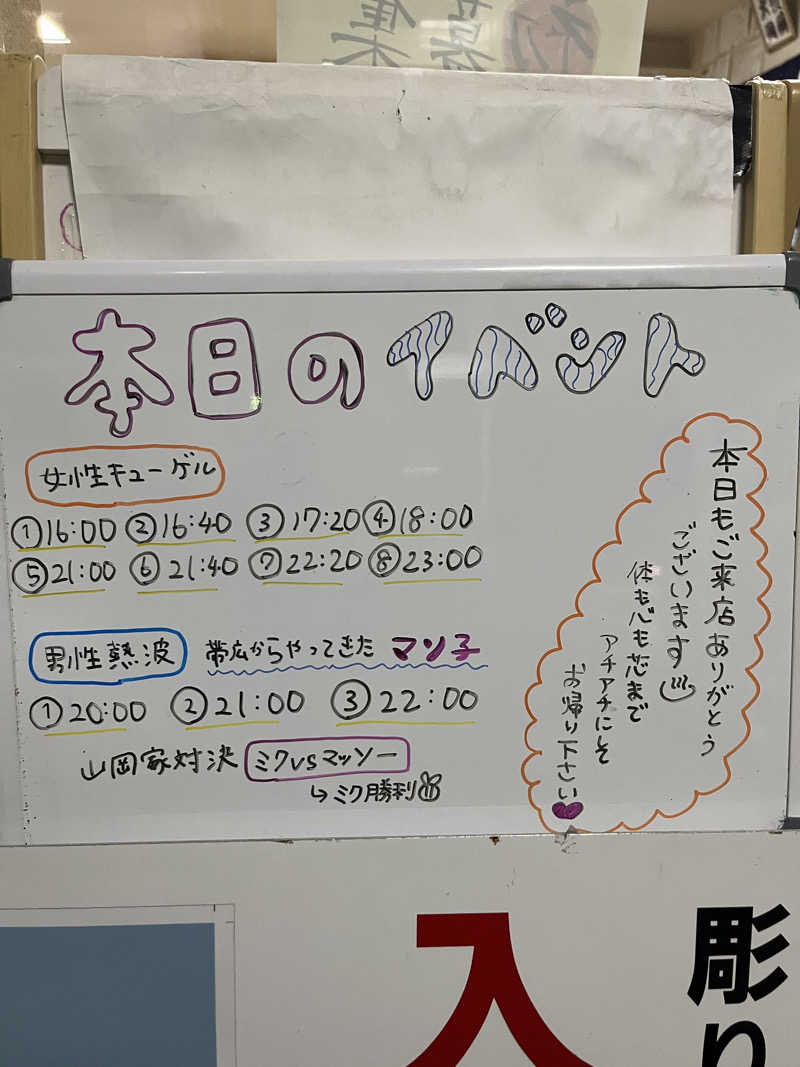 本日のイベント
女性キューゲル
①16:00 ②16:40 ③17:20 ④18:00
⑤21:00 ⑥21:40 ⑦22:20 ⑧23:00
男性熱波 帯広からやってきた マン子
①20:00 ②21:00 ③22:00
山岡家対決 ミクvsマッソー
↳ミク勝利
本日もご来店ありがとう
ございます
体も心も芯まで
アチアチにして
お帰り下さい
入
彫り